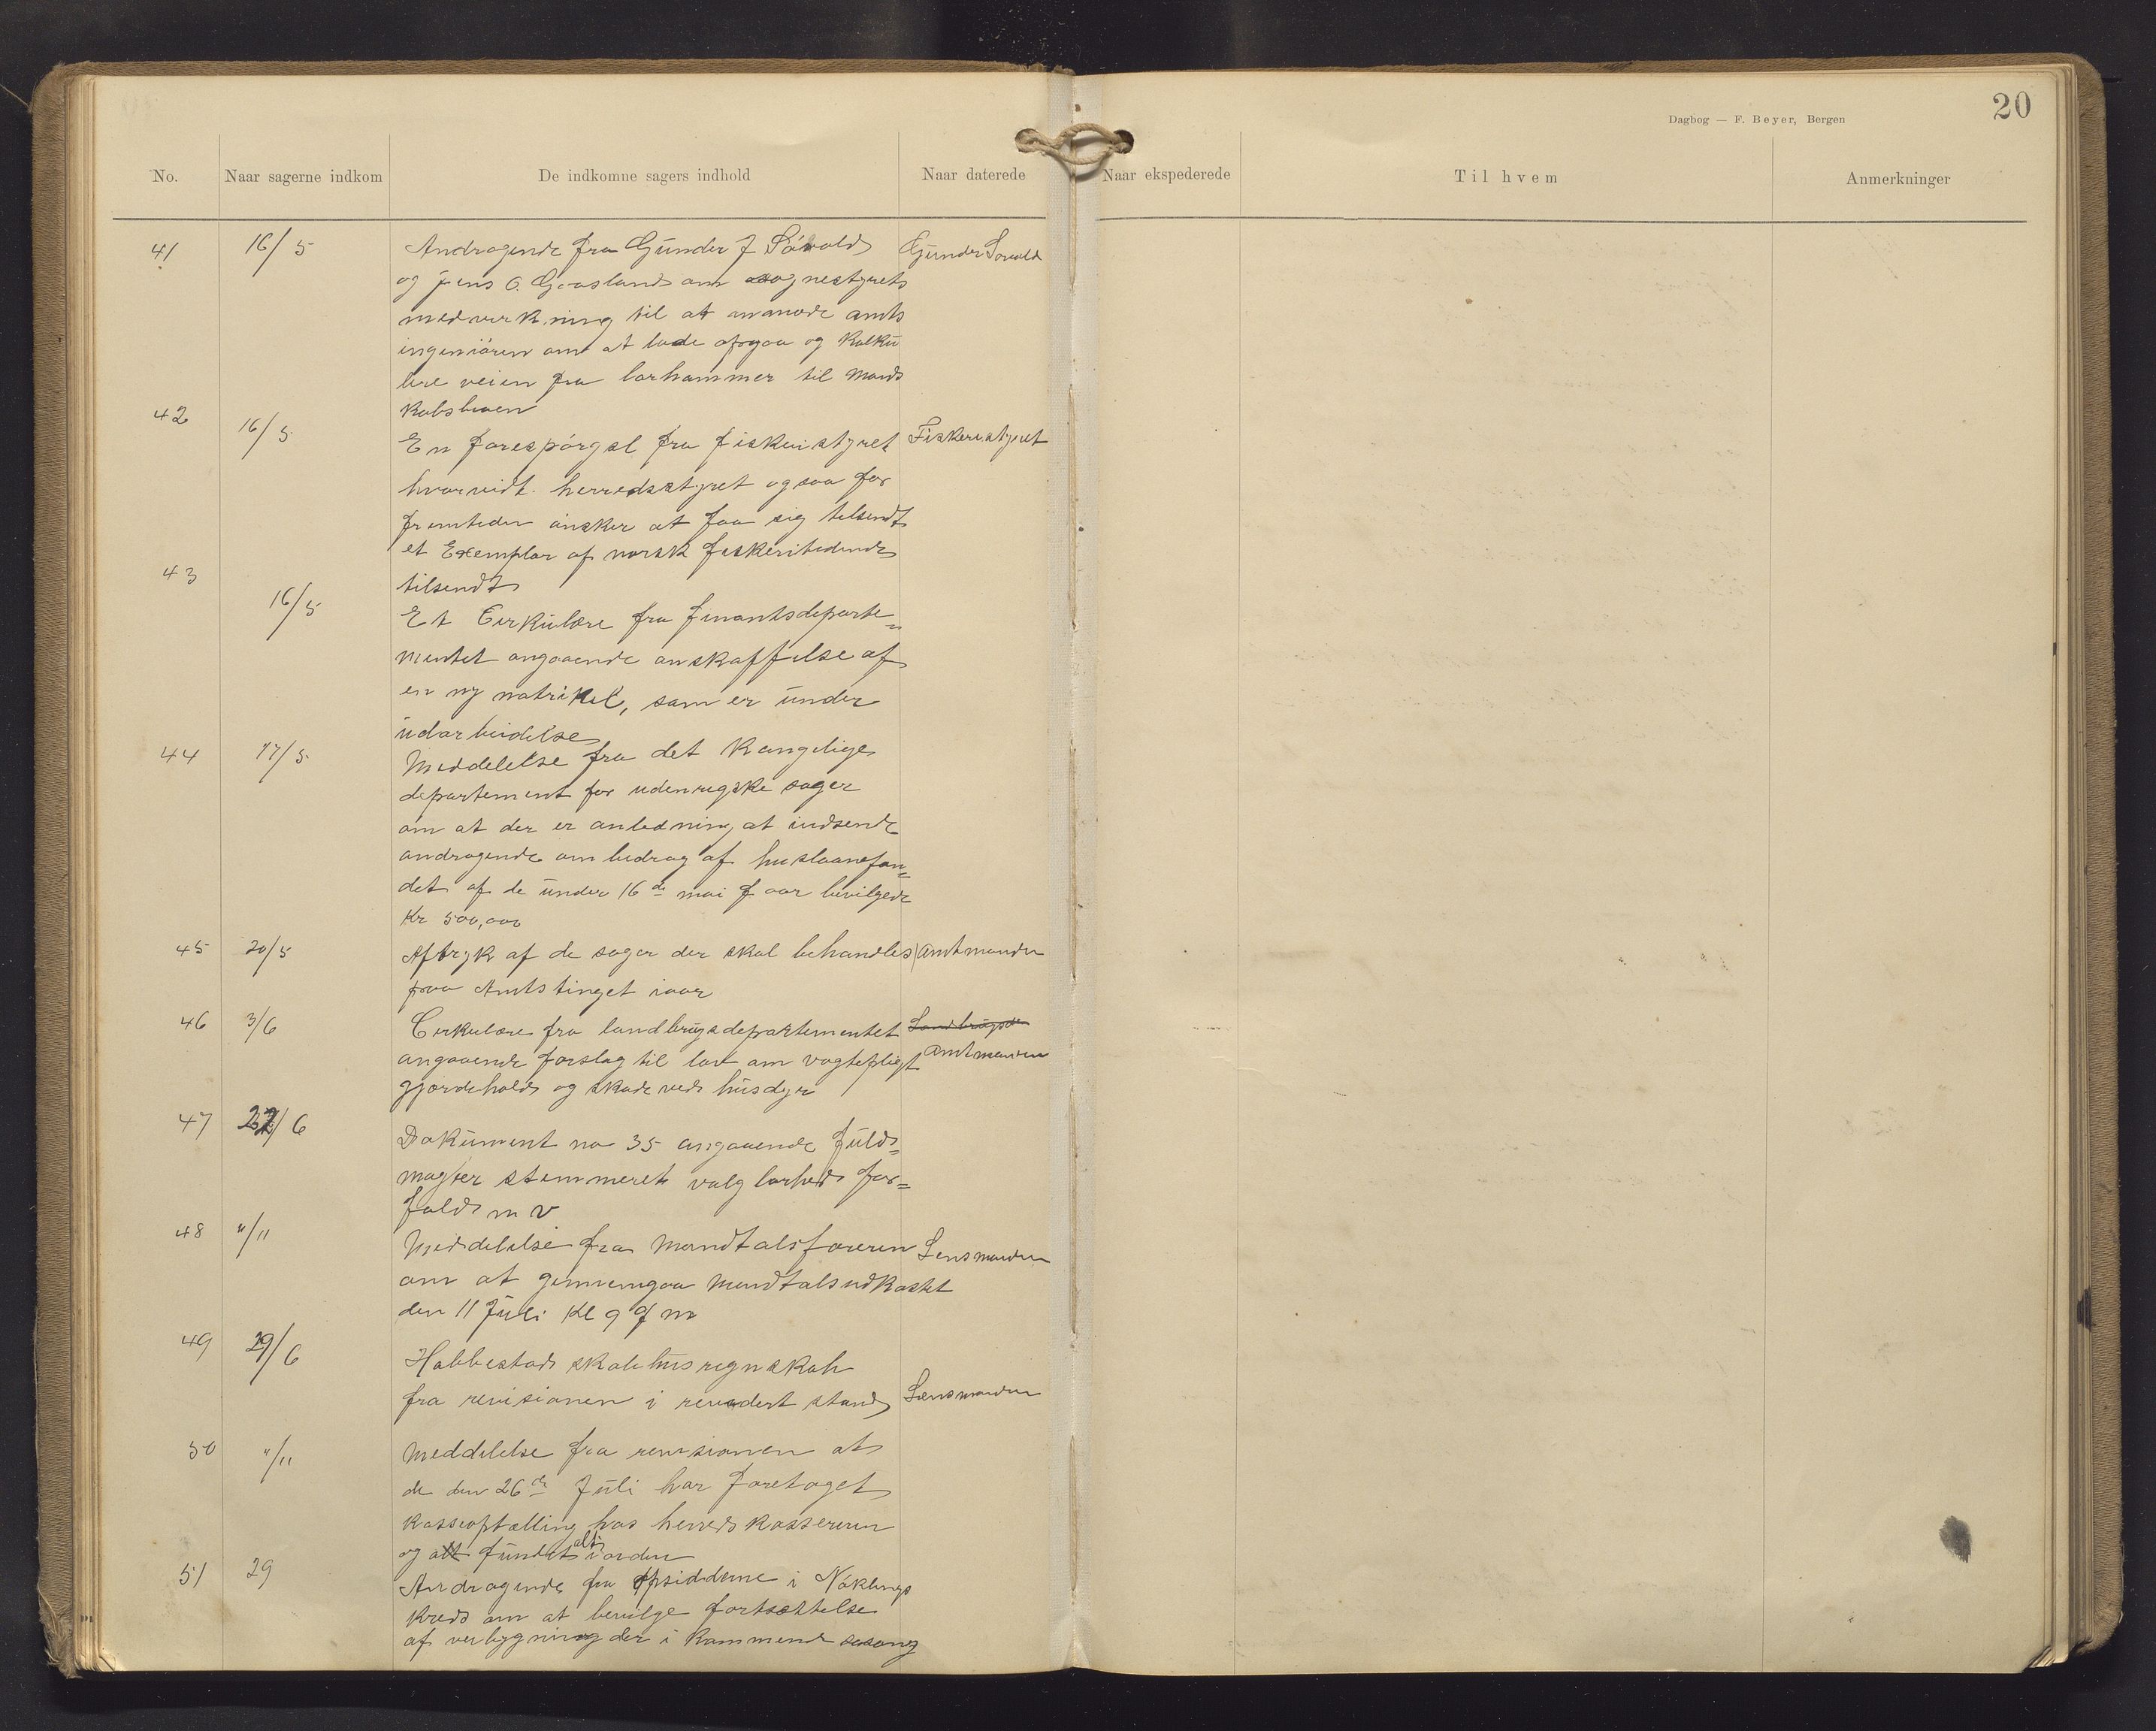 Dagbog — F. Beyer, Bergen
20
No. Naar sagerne indkom De indkomne sagers indhold Naar daterede Naar ekspederede Til hvem Anmerkninger
41 16/5 Andragende fra Gunder J Såvold Gunder Sovold
og Jens O. Gaasland om sognestyrets
medvirkning til at anmode amts
ingeniören om at lade opgaa og Kalku
lere veien fra til
42 16/5
En forespörgsl fra fiskeristyret Fiskeristyret
hvorvidt herredsstyret ogsaa for
fremtiden önsker at faa sig tilsendt
et Exemplar af norsk fiskeritidende
43 tilsendt
16/5 Et Cirkulære fra finantsdeparte=
mentet angaaende anskaffelse af
en ny matrikel, som er under
udarbeidelse
44 17/5 Meddelelse fra det Kongelige
departement for udenrigske sager
om at der er anledning at indsende
andragende om bidrag af huslaanefon=
det af de under 16de mai f aar bevilgede
Kr 500,000
45 20/5 Aftryk af de sager der skal behandles Amtmanden
paa Amtstinget iaar
46 3/6 Cirkulære fra landbrugsdepartementet Landbrugsde
angaaende forslag til lov om vogtepligt Amtmanden
gjördehold og skade ved husdyr
47 22/6 Dokument no 35 angaaende fuld=
magter stemmeret valgbarhed for=
fald m v
48 "/11 Meddelelse fra Mandtalsföreren Lensmanden
om at gjennemgaa Mandtalsudkastet
den 11 Juli Kl 9 f m
49 29/6 Habbestad skolehusregnskab
fra revisionen i revidert stand Lensmanden
50 "/11 Meddelelse fra revisionen at
de den 26de Juli har foretaget
Kasseoptælling hos herredskassereren
og alt fundet alt i orden
51 29 Andragende fra opsidderne i
Kreds om at bevilge fortsættelse
af veibygning der i Kommende sesong